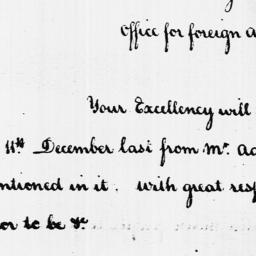 Office for foreign
Your Excellency will
11th December last from Mr.
mentioned in it. With great
or to be &c.